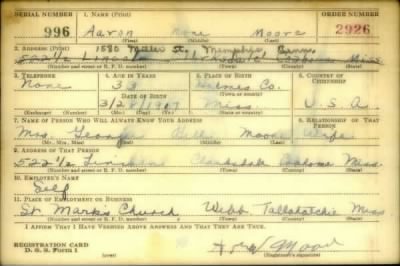 SERIAL NUMBER 1. NAME (Print) ORDER NUMBER
996 Aaron None Moore 2926
(First) (Middle) (Last)
1580 Miller St. Memphis, Tenn.
2. ADDRESS (Print)
522½ Miss
(Number and street or R. F. D. number) (Town) (County) (State)
3. TELEPHONE 4. AGE IN YEARS 5. PLACE OF BIRTH 6. COUNTRY OF CITIZENSHIP
None 33 Holmes Co.
DATE OF BIRTH (Town or county)
3/2 /1907 Miss U. S. A.
(Exchange) (Number) (Mo.) (Day) (Yr.) (State or country)
7. NAME OF PERSON WHO WILL ALWAYS KNOW YOUR ADDRESS 8. RELATIONSHIP OF THAT PERSON
Mrs. Moore Wife
(Mr., Mrs., Miss) (First) (Middle) (Last)
9. ADDRESS OF THAT PERSON
522½ Clarksdale Coahoma Miss.
(Number and street or R. F. D. number) (Town) (County) (State)
10. EMPLOYER'S NAME
Self
11. PLACE OF EMPLOYMENT OR BUSINESS
St Marks Church Webb Tallahatchie Miss
(Number and street or R. F. D. number) (Town) (County) (State)
I AFFIRM THAT I HAVE VERIFIED ABOVE ANSWERS AND THAT THEY ARE TRUE.
REGISTRATION CARD
D. S. S. Form 1 Moore
(Registrant's signature)